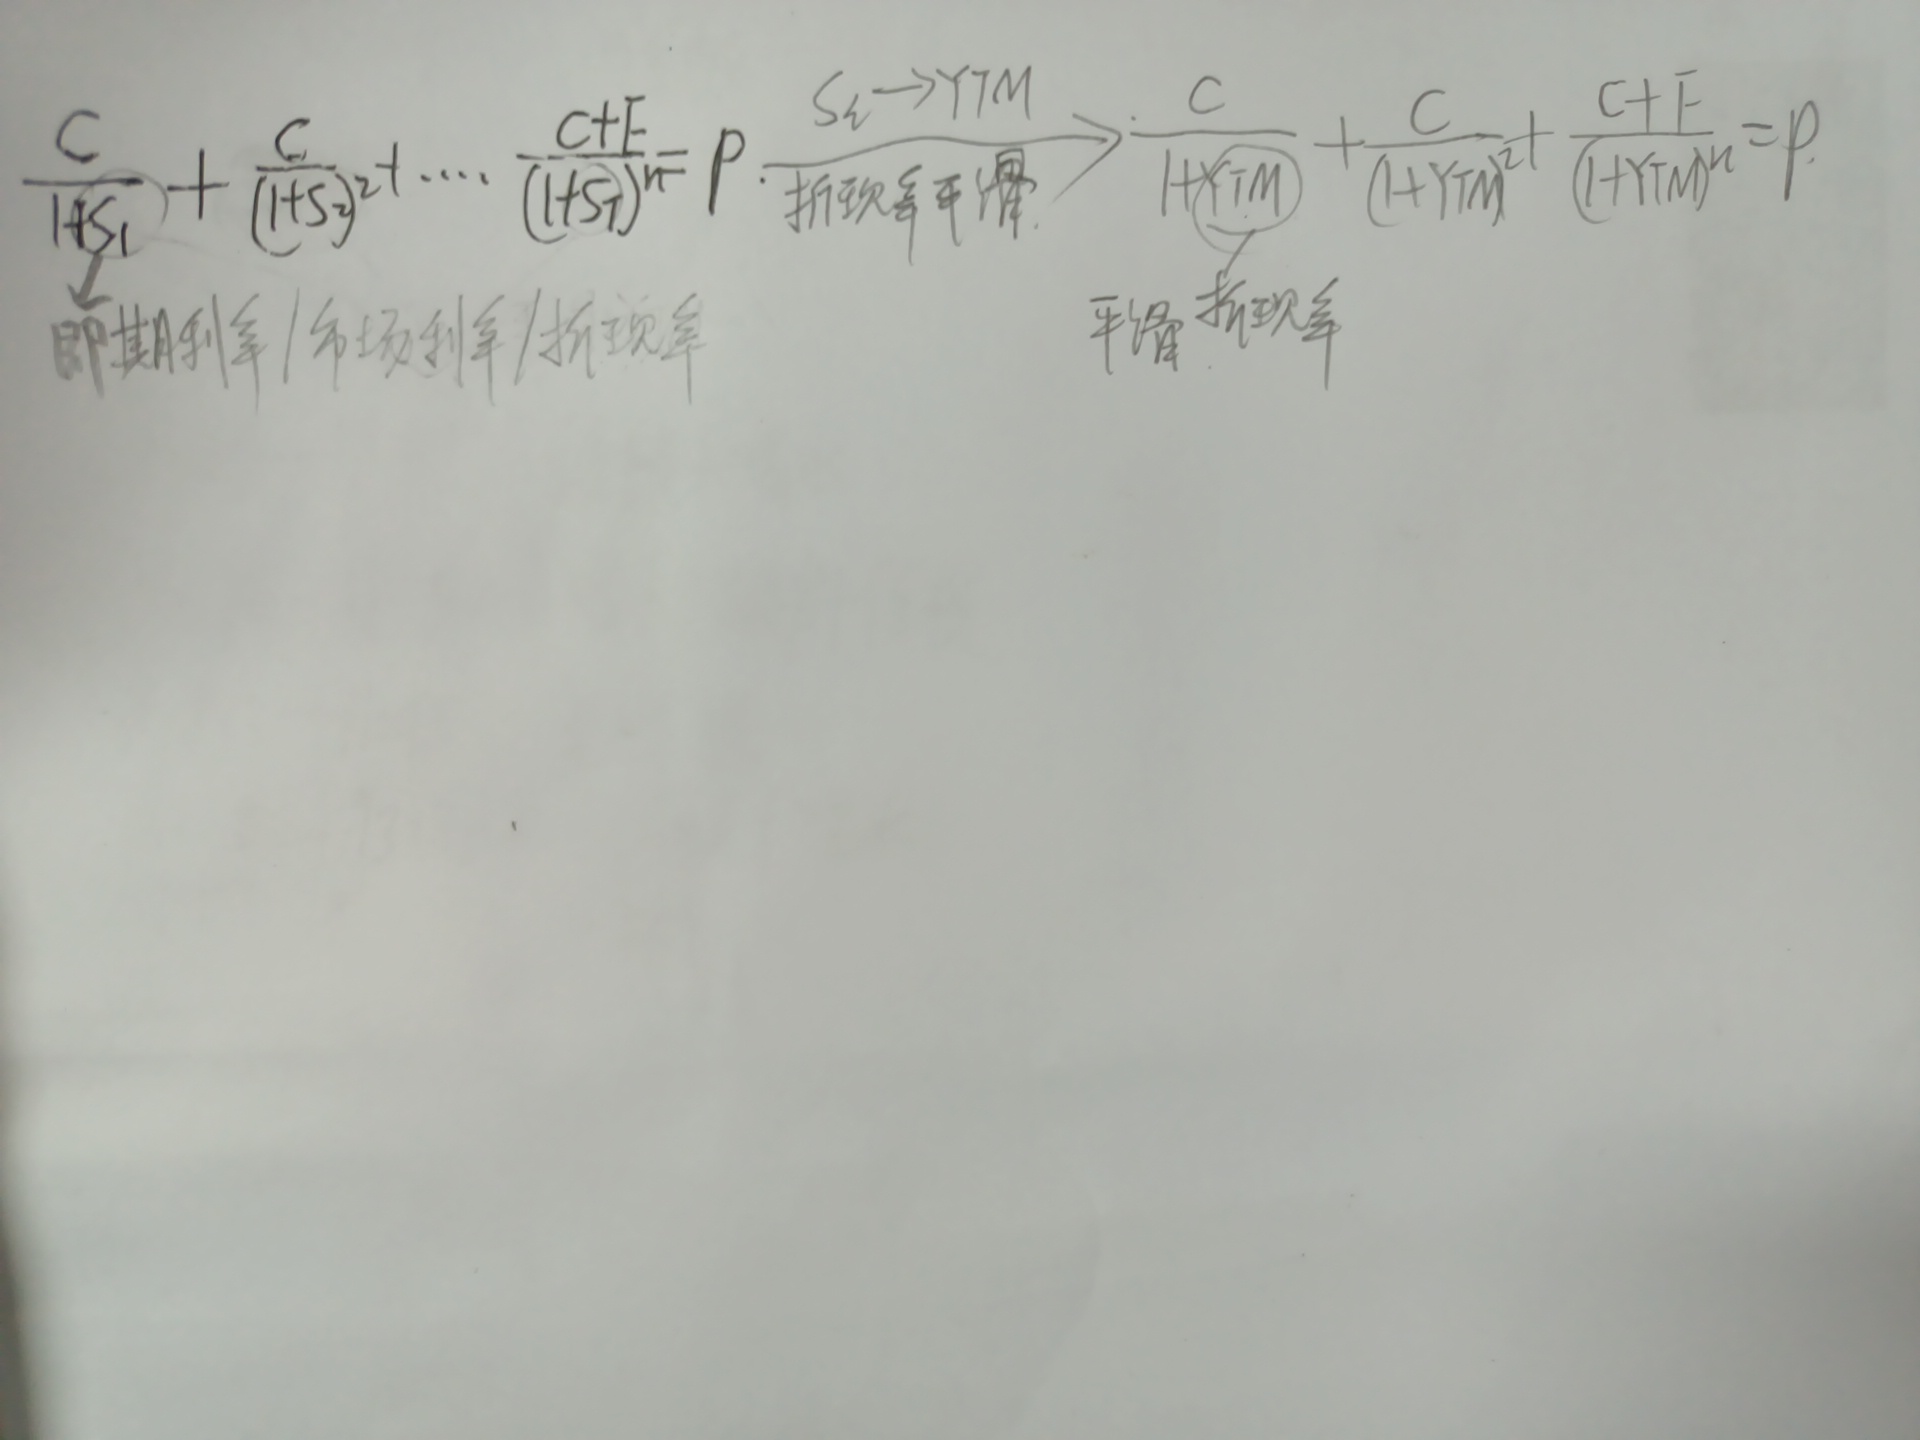 C/(1+S₁) + C/(1+S₂)² + .... (C+F)/(1+S_T)ⁿ = P. S_t→YTM 折现率平滑. C/(1+YTM) + C/(1+YTM)² + (C+F)/(1+YTM)ⁿ = P.
即期利率/市场利率/折现率
平滑折现率